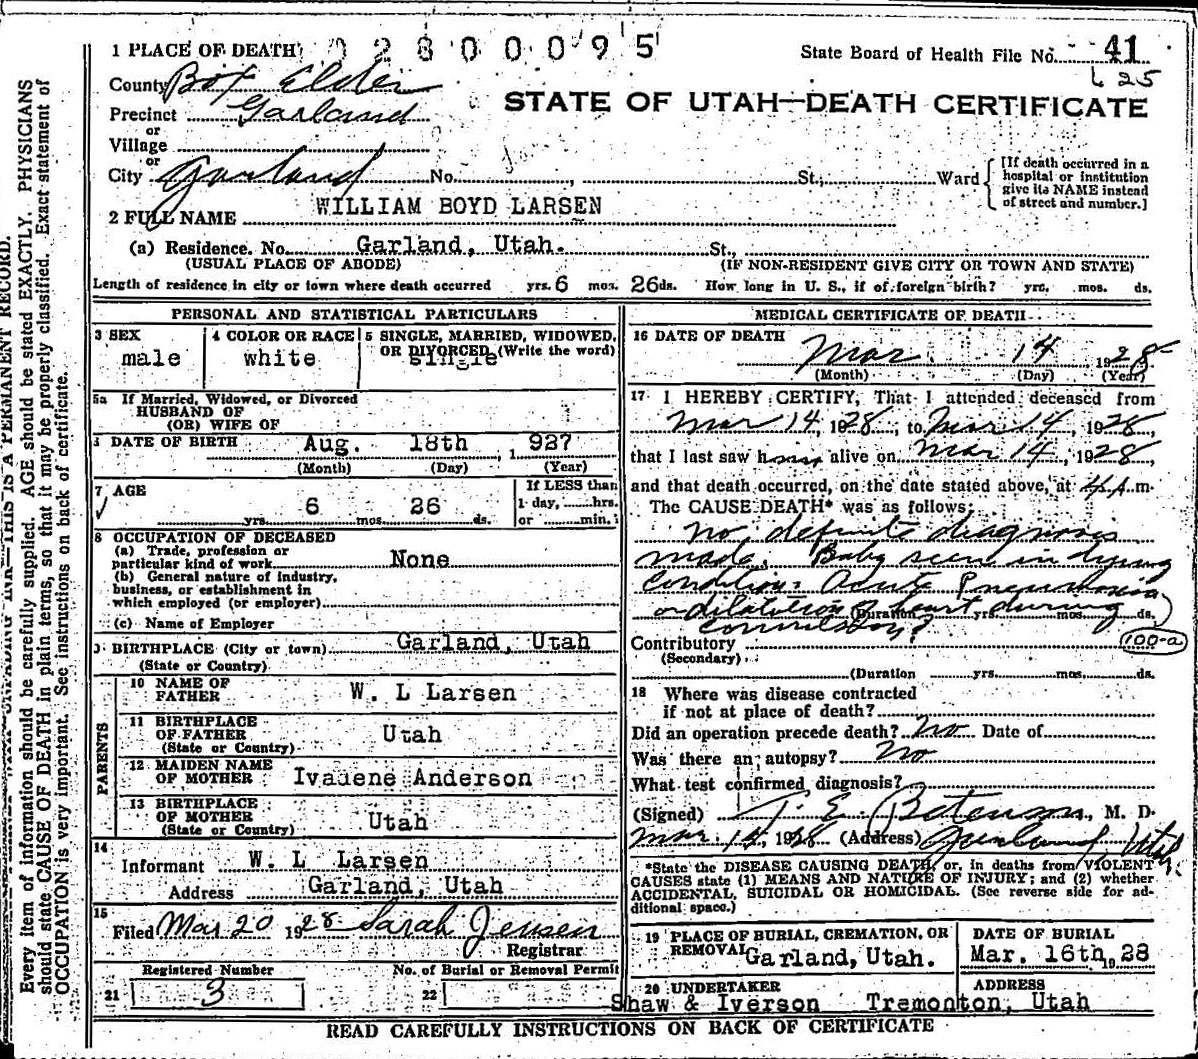 1 PLACE OF DEATH 02800095 State Board of Health File No. 41
County Box Elder
Precinct Garland
STATE OF UTAH—DEATH CERTIFICATE
or
Village
or
City Garland No. , St; Ward [If death occurred in a hospital or institution give its NAME instead of street and number.]
2 FULL NAME WILLIAM BOYD LARSEN
(a) Residence. No. Garland, Utah. St.,
(USUAL PLACE OF ABODE) (IF NON-RESIDENT GIVE CITY OR TOWN AND STATE)
Length of residence in city or town where death occurred yrs. 6 mos. 26 ds. How long in U. S., if of foreign birth? yrs. mos. ds.
PERSONAL AND STATISTICAL PARTICULARS
3 SEX
male
4 COLOR OR RACE
white
5 SINGLE, MARRIED, WIDOWED,
OR DIVORCED (Write the word)
single
5a If Married, Widowed, or Divorced
HUSBAND OF
(OR) WIFE OF
DATE OF BIRTH Aug. 18th , 1 927
(Month) (Day) (Year)
7 AGE
6 26
yrs. mos. ds.
If LESS than
1 day, hrs.
or min.
8 OCCUPATION OF DECEASED
(a) Trade, profession or
particular kind of work None
(b) General nature of industry,
business, or establishment in
which employed (or employer)
(c) Name of Employer
BIRTHPLACE (City or town) Garland, Utah
(State or Country)
PARENTS
10 NAME OF
FATHER W. L Larsen
11 BIRTHPLACE
OF FATHER Utah
(State or Country)
12 MAIDEN NAME
OF MOTHER Ivadene Anderson
13 BIRTHPLACE
OF MOTHER Utah
(State or Country)
14
Informant W. L Larsen
Address Garland, Utah
15
Filed Mar 20 1928 Sarah Jensen
Registrar
Registered Number No. of Burial or Removal Permit
21 3 22
MEDICAL CERTIFICATE OF DEATH
16 DATE OF DEATH
Mar. 14 1928
(Month) (Day) (Year)
17 I HEREBY CERTIFY, That I attended deceased from
Mar 14, 1928, to Mar 14, 1928,
that I last saw him alive on Mar 14, 1928,
and that death occurred, on the date stated above, at 4 A. m.
The CAUSE DEATH* was as follows:
No definite diagnosis
made. Baby seen in dying
condition: Acute Pneumonia
or dilatation of heart during
(Duration yrs. mos. ds.)
convulsion?
Contributory 100-a
(Secondary)
(Duration yrs. mos. ds.
18 Where was disease contracted
if not at place of death?
Did an operation precede death? No Date of
Was there an autopsy? No
What test confirmed diagnosis?
(Signed) T. E. Betenson, M. D.
Mar. 14, 1928 (Address) Garland Utah.
*State the DISEASE CAUSING DEATH, or, in deaths from VIOLENT
CAUSES state (1) MEANS AND NATURE OF INJURY; and (2) whether
ACCIDENTAL, SUICIDAL OR HOMICIDAL. (See reverse side for ad-
ditional space.)
19 PLACE OF BURIAL, CREMATION, OR
REMOVAL Garland, Utah.
DATE OF BURIAL
Mar. 16th, 1928
20 UNDERTAKER
Shaw & Iverson
ADDRESS
Tremonton, Utah
READ CAREFULLY INSTRUCTIONS ON BACK OF CERTIFICATE
THIS IS A PERMANENT RECORD.
Every item of information should be carefully supplied. AGE should be stated EXACTLY. PHYSICIANS
should state CAUSE OF DEATH in plain terms, so that it may be properly classified. Exact statement of
OCCUPATION is very important. See instructions on back of certificate.